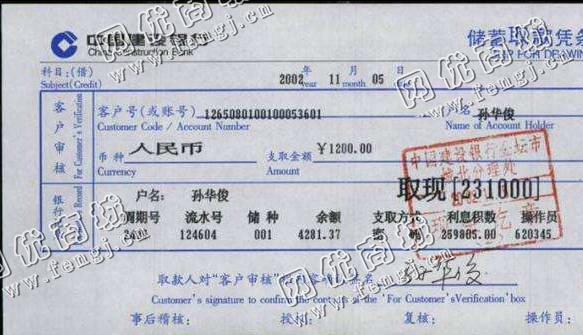 中国建设银行 储蓄取款凭条
China Construction Bank
科目:(借) 2002年 11月 05
Subject(Credit) year month
客户审核 For Customer's Verification
客户号(或账号) 1265080100100053601 名 孙华俊
Customer Code / Account Number Name of Account Holder
币种 人民币 支取金额 ¥1200.00
Currency
中国建设银行金坛市
户名: 孙华俊 取现 [231000]
周期号 流水号 储种 余额 支取方式 利息积数 操作员
124604 001 4281.37 密码 259805.00 620345
取款人对"客户审核" 签名 孙华俊
Customer's signature to confirm the contents of the 'For Customer'sVerification'box
事后稽核: 授权: 复核: 操作员:
网优商城
www.femgj.cn